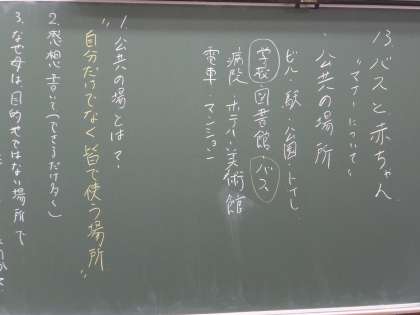 13. バスと赤ちゃん
"マナーについて"
・公共の場所
ビル・駅・公園・トイレ
学校・図書館・バス
病院・ホテル・美術館
電車・マンション
1. 公共の場とは?
"自分だけでなく皆で使う場所"
2. 感想を書いて(できるだけ多く)
3. なぜ母は目的地ではない場所で